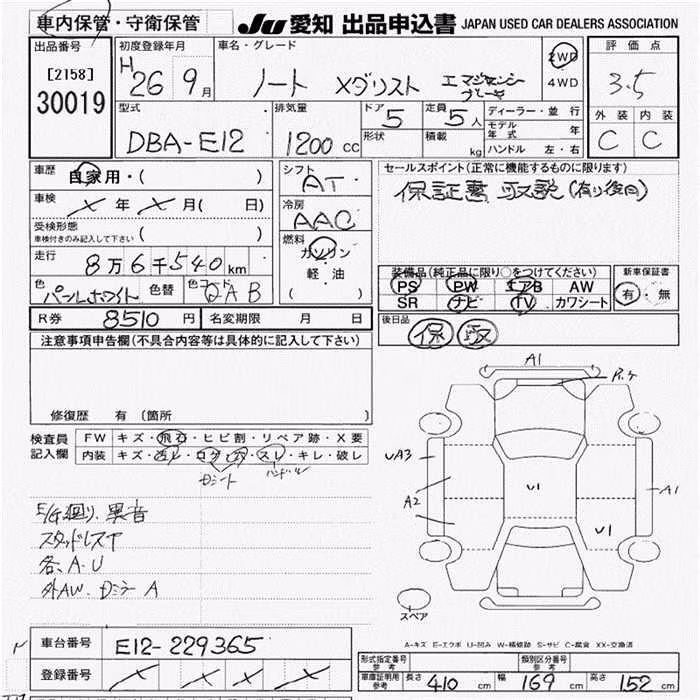 車内保管・守衛保管
JU 愛知 出品申込書 JAPAN USED CAR DEALERS ASSOCIATION
出品番号 初度登録年月 車名・グレード 評価点
[2158] H 26 9月 ノート Xダリスト エマジェンシー ブレーキ 2WD 4WD 3.5
30019
型式 排気量 ドア 定員 ディーラー・並行 外装 内装
DBA-E12 1200 cc 5 5人 モデル年式 年 C C
形状 積載 kg ハンドル 左・右
車歴 自家用・( ) シフト AT セールスポイント(正常に機能するものに限ります)
保証書 取説(有り後日)
車検 X年 X月( 日) 冷房 AAC
受検形態 車検付きのみ記入して下さい ( )
燃料 ガソリン 軽油 ( )
走行 8万6千540km
装備品(純正品に限り○をつけてください) 新車保証書
PS PW エアB AW 有・無
SR ナビ TV カワシート
色 パールホワイト 色替 色コード QAB
R券 8510円 名変期限 月 日
後日品 保 取
注意事項申告欄(不具合内容等は具体的に記入して下さい)
修復歴 有(箇所 )
検査員記入欄 FW キズ・飛石・ヒビ割・リペア跡・X要
内装 キズ・汚レ・コゲ・穴・スレ・キレ・破レ
ハンドル
E/G廻り、異音
スタッドレスT
各、A・U
外AW、Dミラー A
A1
UA3
A2
U1
U1
A1
スペア
A-キズ E-エクボ U-凹み W-補修跡 S-サビ C-腐食 XX-交換済
車台番号 E12-229365
登録番号
形式指定番号 参考 類別区分番号 参考
車庫証明用参考 長さ 410 cm 幅 169 cm 高さ 152 cm